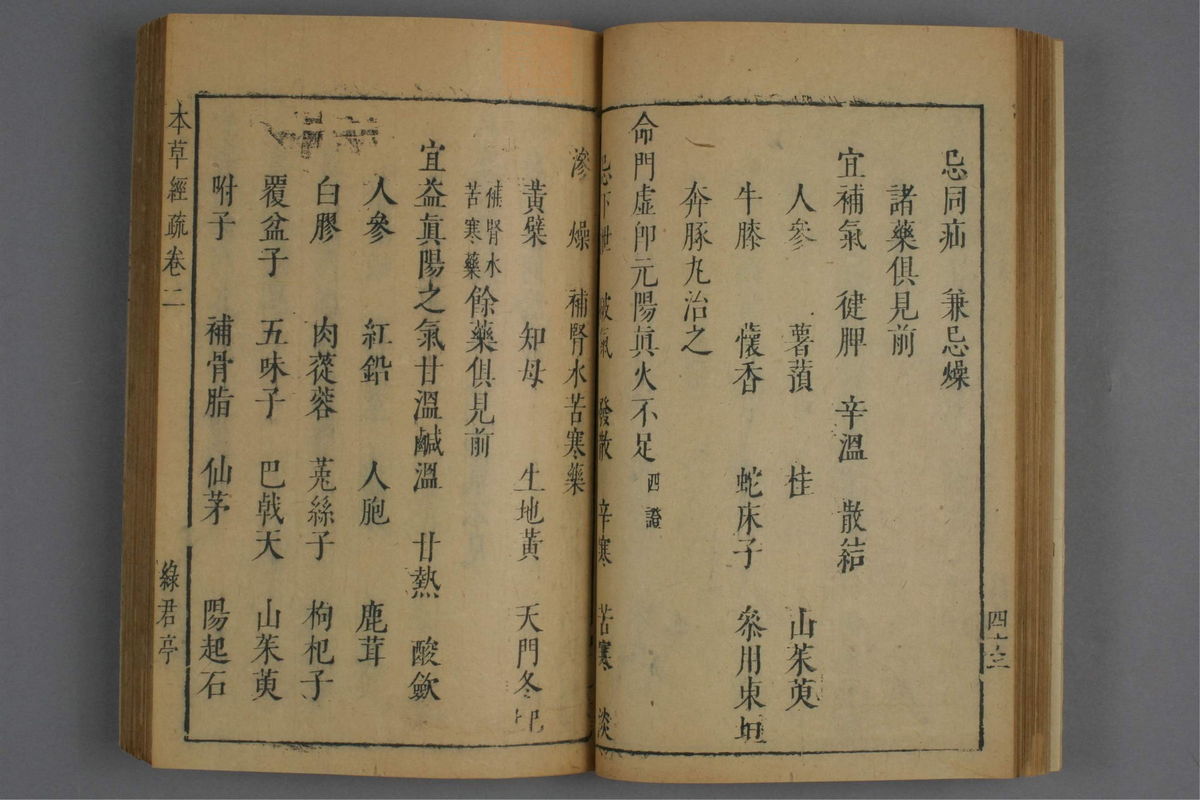 忌同疝　兼忌燥
諸藥俱見前
宜補氣　健脾　辛溫　散結
人參　薯蕷　桂　山茱萸
牛膝　懷香　蛇床子　叅用東垣
奔豚丸治之
命門虛卽元陽眞火不足四證
忌下泄　破氣　發散　辛寒　苦寒　淡
滲　燥　補腎水苦寒藥
黃蘗　知母　生地黃　天門冬
補腎水苦寒藥餘藥俱見前
宜益眞陽之氣甘溫鹹溫　甘熱　酸歛
人參　紅鉛　人胞　鹿茸
白膠　肉蓯蓉　菟絲子　枸杞子
覆盆子　五味子　巴戟天　山茱萸
附子　補骨脂　仙茅　陽起石
四十三
本草經疏卷二
綠君亭